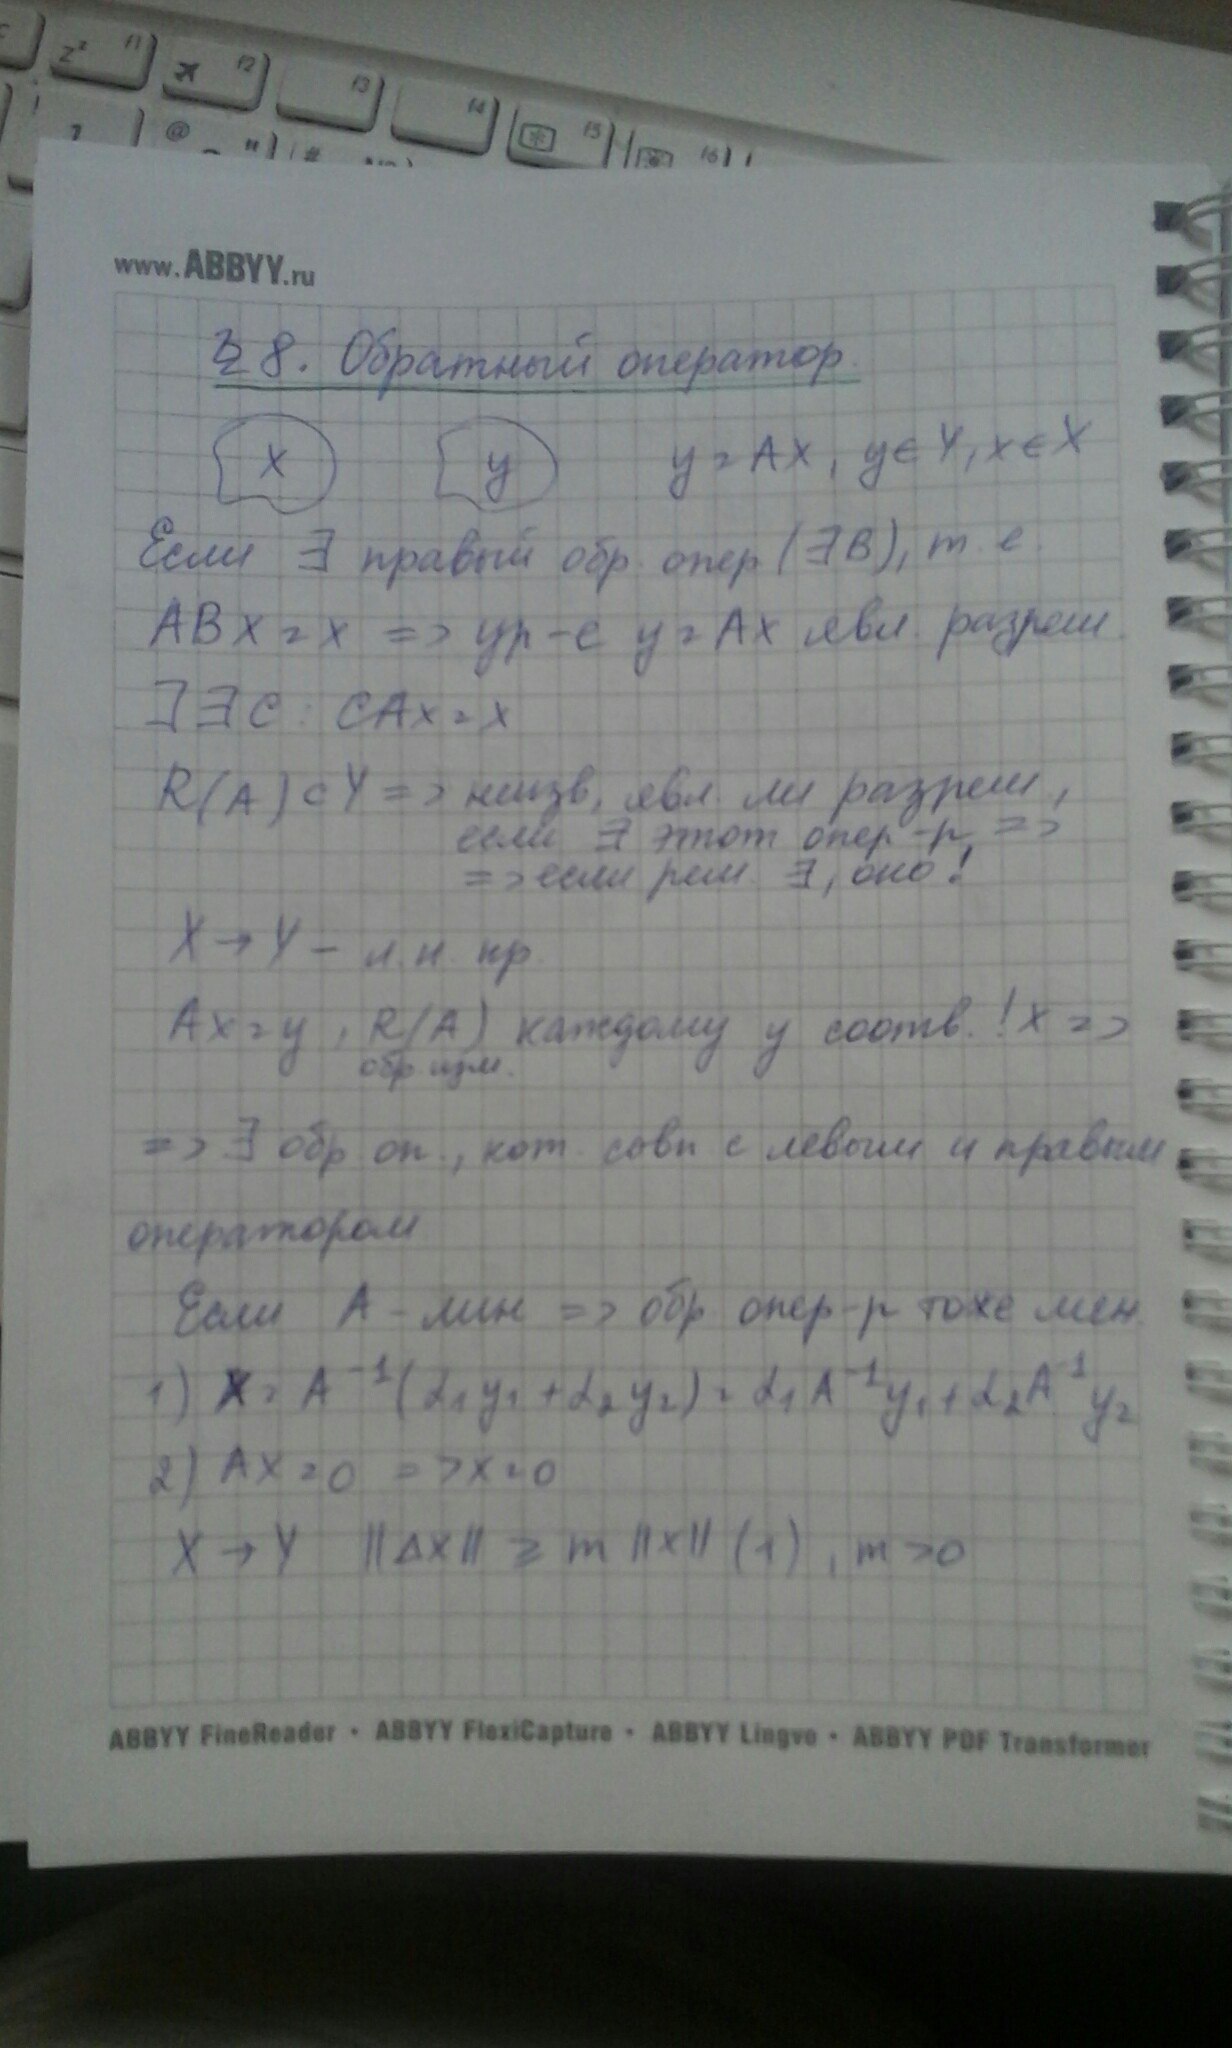 z² f1 f2 f3 f4 f5 f6
@ " #
www.ABBYY.ru
§ 8. Обратный оператор.
X y y = AX, y ∈ Y, x ∈ X
Если ∃ правый обр. опер (∃ B), т. е.
ABX = x => ур-е y = Ax явл. разреш
]∃ C : CAx = x
R(A) ⊂ Y => неизв, явл. ли разреш,
если ∃ этот опер-р =>
=> если реш. ∃, оно !
X → Y - л. н. пр.
Ax = y, R(A) каждому y соотв. ! x =>
обр
=> ∃ обр оп., кот. совп с левым и правым
оператором
Если A - лин => обр опер-р тоже лин
1) X = A⁻¹(α₁y₁ + α₂y₂) = α₁A⁻¹y₁ + α₂A⁻¹y₂
2) AX = 0 => x = 0
X → Y ||AX|| ≥ m ||X|| (1), m > 0
ABBYY FineReader • ABBYY FlexiCapture • ABBYY Lingvo • ABBYY PDF Transformer